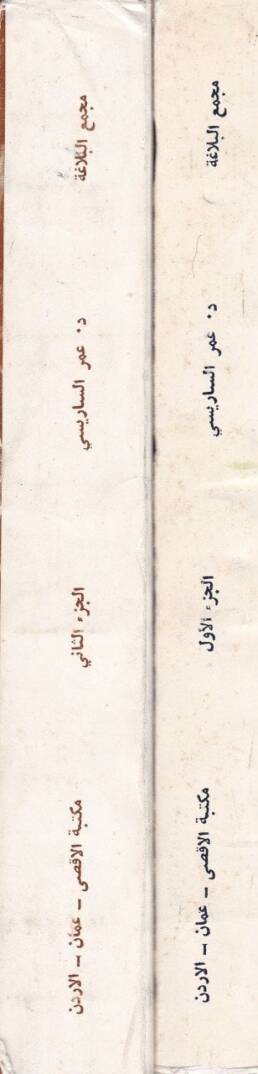 مجمع البلاغة
د. عمر الساريسي
الجزء الأول
مكتبة الاقصى - عمان - الاردن
مجمع البلاغة
د. عمر الساريسي
الجزء الثاني
مكتبة الاقصى - عمان - الاردن